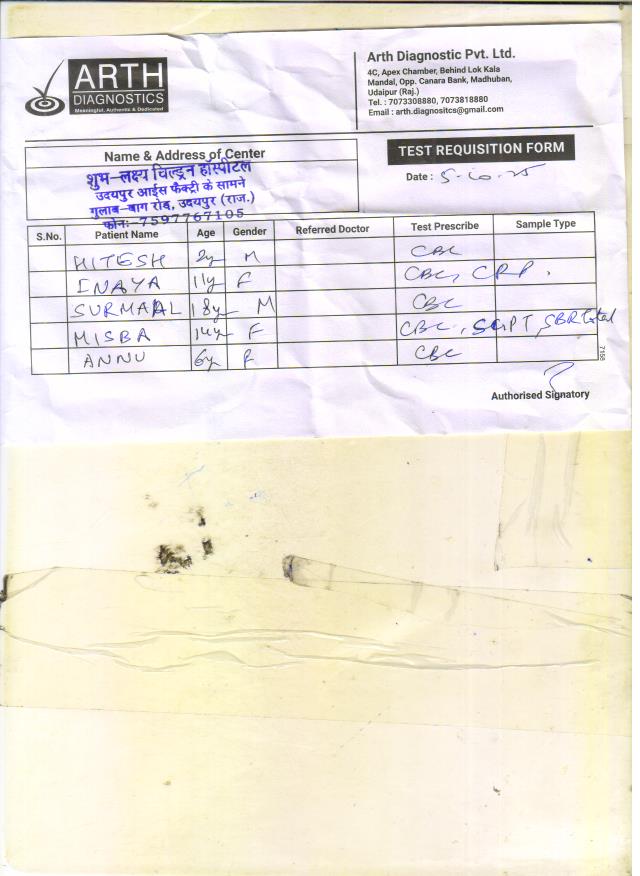 ARTH
DIAGNOSTICS
Meaningful, Authentic & Dedicated
Arth Diagnostic Pvt. Ltd.
4C, Apex Chamber, Behind Lok Kala
Mandal, Opp. Canara Bank, Madhuban,
Udaipur (Raj.)
Tel. : 7073308880, 7073818880
Email : arth.diagnositcs@gmail.com
TEST REQUISITION FORM
Date : 5-10-25
Name & Address of Center
शुभ-लक्ष्य चिल्ड्रन हॉस्पीटल
उदयपुर आईस फैक्ट्री के सामने
गुलाब-बाग रोड, उदयपुर (राज.)
फोन:-7597767105
S.No. Patient Name Age Gender Referred Doctor Test Prescribe Sample Type
HITESH 2y M CBC
INAYA 11y F CBC, CRP.
SURMAAL 18y M CBC
MISBA 14y F CBC, SGPT, SBR total
ANNU 6y F CBC
7158
Authorised Signatory